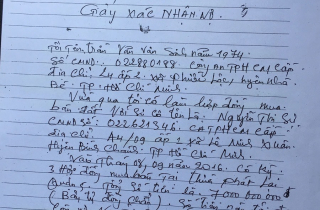 Giấy xác NHẬN NỢ
Tôi Tên Trần Văn Vân Sinh năm 1974
Số CMND: 022880188 Công an TPHCM cấp
địa chỉ: ấp 2 xã Phước Lộc, huyện Nhà
Bè TP Hồ Chí Minh
Vừa qua tôi có làm hợp đồng mua
bán đất với Bà có tên Là: Nguyễn Thị Sử
CMND số: 022621346 CATPHCM cấp
địa chỉ: A4/09 ấp 1 xã Lê Minh Xuân
Huyện Bình Chánh TP Hồ Chí Minh.
Vào Tháng 09 năm 2016. Có Ký
3 Hợp đồng mua bán Tại Thừa phát Lại
Quận 5. Tổng Số tiền là 7.000.000.000
( Bảy tỷ đồng chẵn )